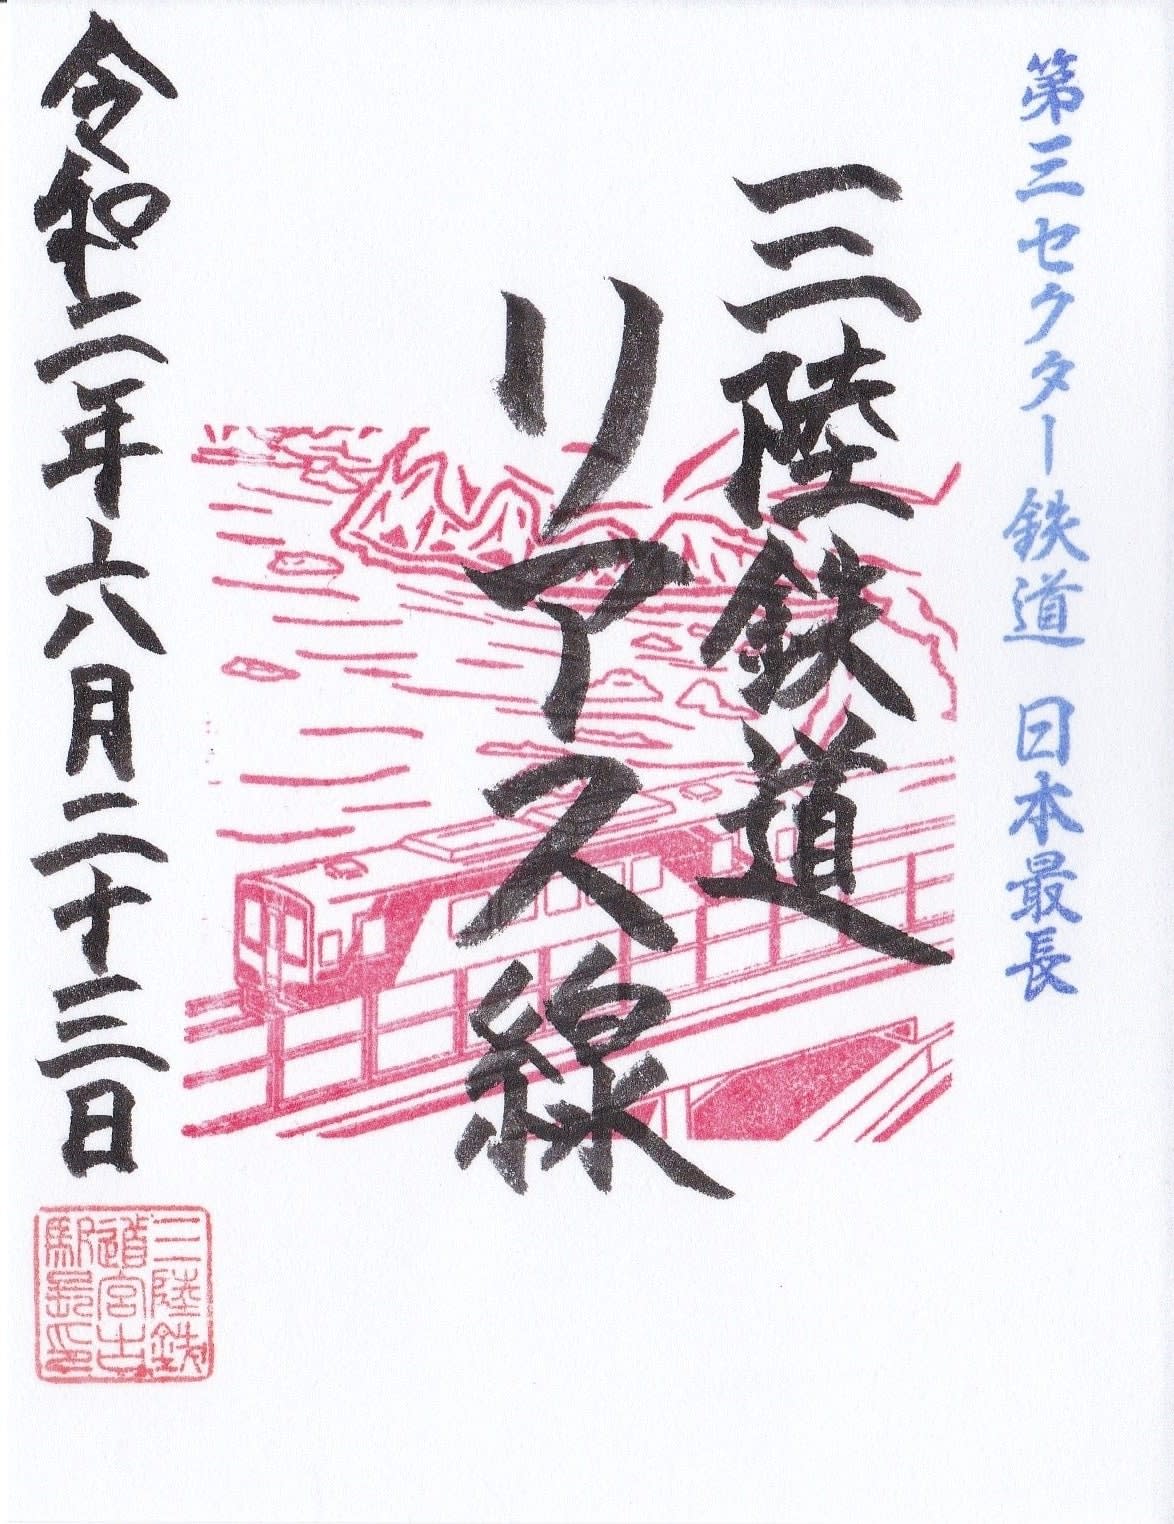 第三セクター鉄道 日本最長
三陸鉄道
リアス線
令和二年六月二十三日
三陸鉄
道宮古
駅長印